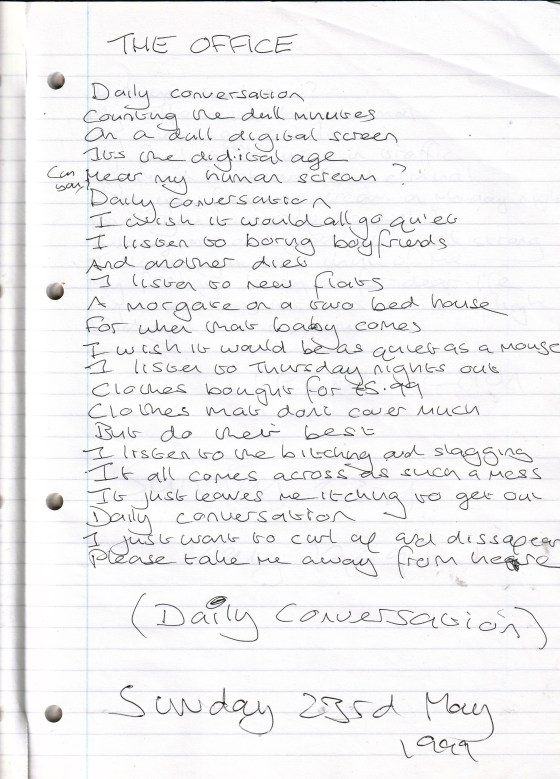 THE OFFICE
Daily conversation
Counting the dull minutes
On a dull digital screen
Its the digital age
Can you Hear my human scream?
Daily conversation
I wish it would all go quiet
I listen to boring boyfriends
And another diet
I listen to new flats
A morgage on a two bed house
For when that baby comes
I wish it would be as quiet as a mouse
I listen to Thursday nights out
Clothes bought for £5.99
Clothes that dont cover much
But do their best
I listen to the bitching and slagging
It all comes across as such a mess
It just leaves me itching to get out
Daily conversation
I just want to curl up and dissapear
Please take me away from here
(Daily Conversation)
Sunday 23rd May
1999